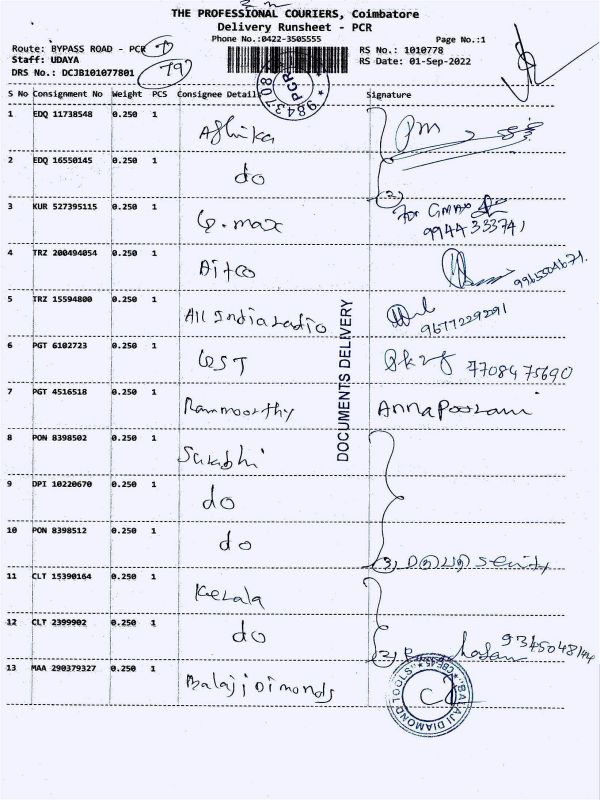 THE PROFESSIONAL COURIERS, Coimbatore
Delivery Runsheet - PCR
Phone No.:0422-3505555
Page No.:1
Route: BYPASS ROAD - PCR
RS No.: 1010778
Staff: UDAYA
RS Date: 01-Sep-2022
DRS No.: DCJB101077801
797
PCR
9843708
S No Consignment No Weight PCS Consignee Details Signature
1 EDQ 11738548 0.250 1 Ashika
2 EDQ 16550145 0.250 1 do (2)
3 KUR 527395115 0.250 1 G.max For GMAX 9944333741
4 TRZ 200494054 0.250 1 Aitco
5 TRZ 15594800 0.250 1 All India radio 9677229291
6 PGT 6102723 0.250 1 GST 7708475690
7 PGT 4516518 0.250 1 Rammoorthy Annapoorani
8 PON 8398502 0.250 1 Surabhi
9 DPI 10220670 0.250 1 do
10 PON 8398512 0.250 1 do (3)
11 CLT 15390164 0.250 1 Kerala
12 CLT 2399902 0.250 1 do 9345048144
13 MAA 290379327 0.250 1 Balaji Dimonds
DOCUMENTS DELIVERY
BALAJI DIAMOND TOOLS
CBE-45